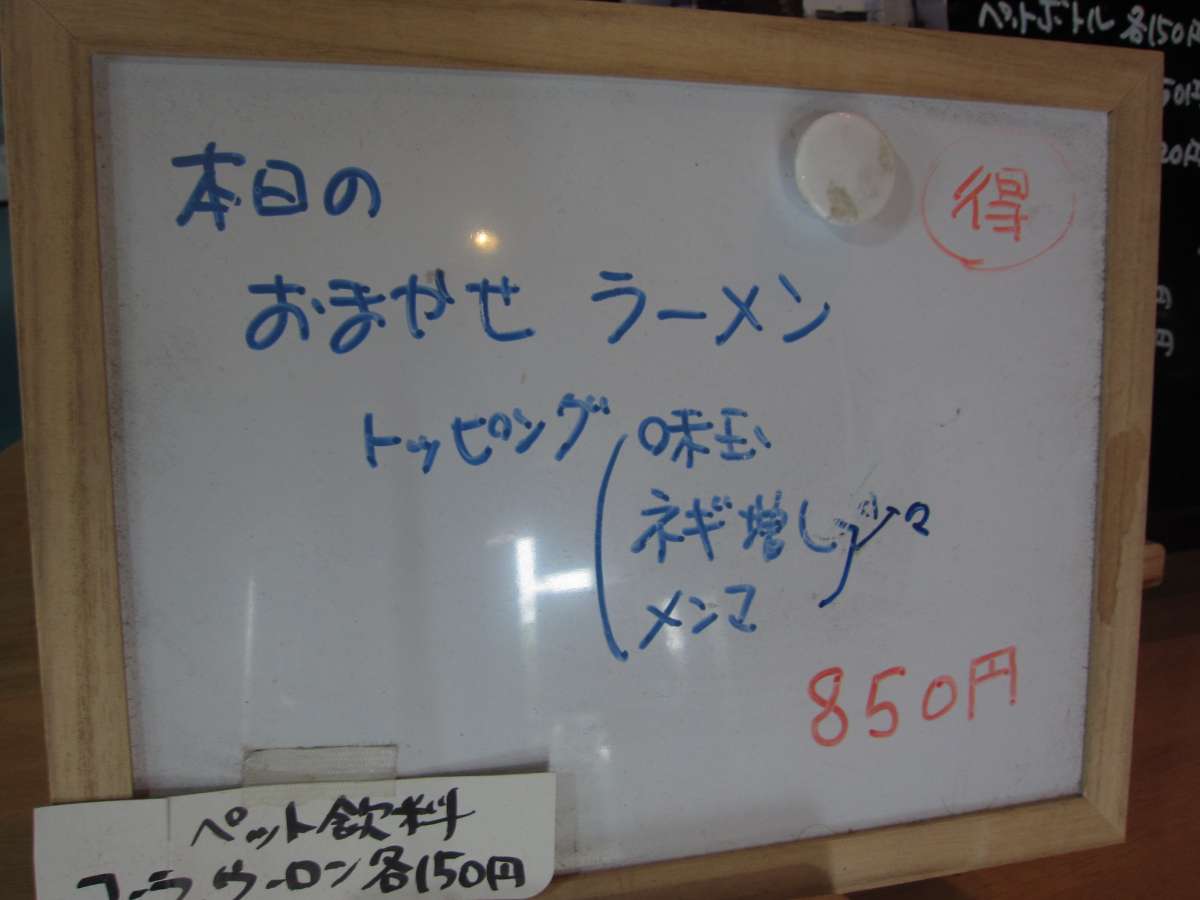 ペットボトル 各150円
50円
20円
円
円
得
本日の
おまかせ ラーメン
トッピング
味玉
ネギ増し
メンマ
850円
ペット飲料
コーラ ウーロン 各150円